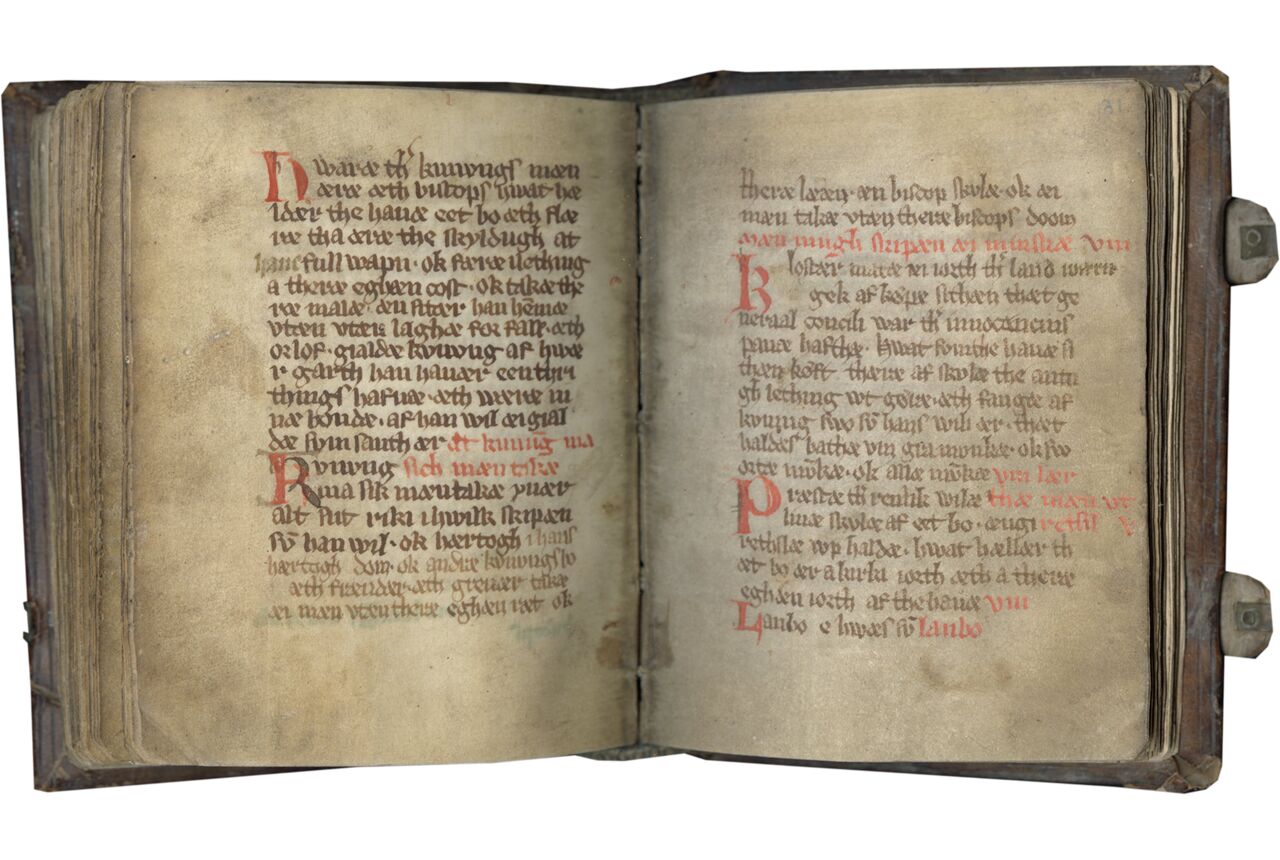 Hwaræ thr kunungs mæn
æræ æth biscops hwat hæ
ldær the hauæ eet bo æth flæ
ræ tha æræ the skyldugh at
hauæ full wapn. ok faræ i lething
a theræ eghæn cost. ok takæ the
ræ malæ. æn sitær han hemæ
vtæn vtær laghæ for fall. æth
orlof. gialdæ kunung af hwæ
r garth han hauær een thri
things hafnæ. æth væræ in
næ bondæ. af han wil æi gial
dæ som santh ær at kunung ma
Kunung sich mæn takæ
ma sik mæn takæ yuær
alt sit riki i hwilk skipæn
sum han wil. ok hærtogh i hans
hærtogh dom. ok andræ kunungs
æth frændær. æth greuær takæ
æi mæn vten there eghæn ræt ok
31
theræ lææn. æn biscop skulæ. ok æi
mæn takæ vtæn theræ biscops doom
mæn mugh skipæn æi minskæ vm
Klostær matæ æi iorth thr land wærn
gek af køpæ sithæn thæt ge
neraal concili war thr innocencius
pauæ hafthæ. hwat sum the hauæ si
thæn køft thære af skulæ the anti
gh lething wt gøræ. æth fangæ af
kunung swo sum hans wili ær. thæt
haldes bathæ vm gra munkæ. ok swo
ortæ munkæ. ok allæ munkæ vm lær
Præstæ thr renlik wilæ thæ mæn vt
liuæ skulæ af eet bo. ængi retsil
rethslæ vp haldæ. hwat hællær th
æt bo ær a kirki iorth æth a theræ
eghæn iorth af the hauæ vm
Lanbo e hwæs sum lanbo